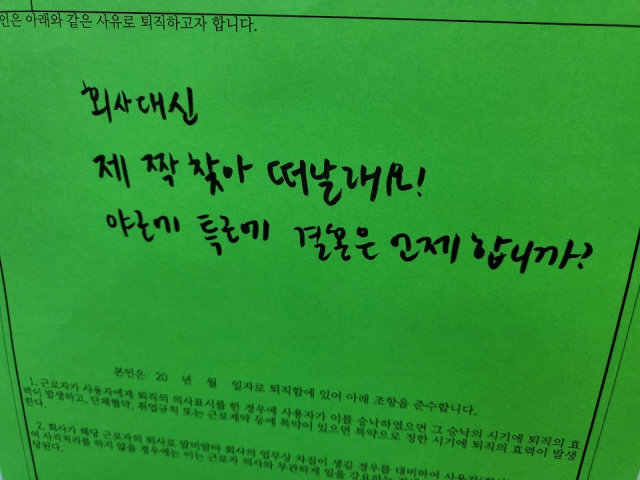 인은 아래와 같은 사유로 퇴직하고자 합니다.
회사대신
제 짝 찾아 떠날래요!
야근에 특근에 결혼은 언제 합니까?
본인은 20 년 월 일자로 퇴직함에 있어 아래 조항을 준수합니다.
1. 근로자가 사용자에게 퇴직의 의사표시를 한 경우에 사용자가 이를 승낙하였으면 그 승낙의 시기에 퇴직의 효
력이 발생하고, 단체협약, 취업규칙 또는 근로계약 등에 특약이 있으면 특약으로 정한 시기에 퇴직의 효력이 발생
한다.
2. 회사가 해당 근로자의 퇴사로 말미암아 회사의 업무상 차질이 생길 경우를 대비하여
여 사직처리를 하지 않을 경우에는 이는 근로자 의사와 무관하게 일을 강요하는
당된다.